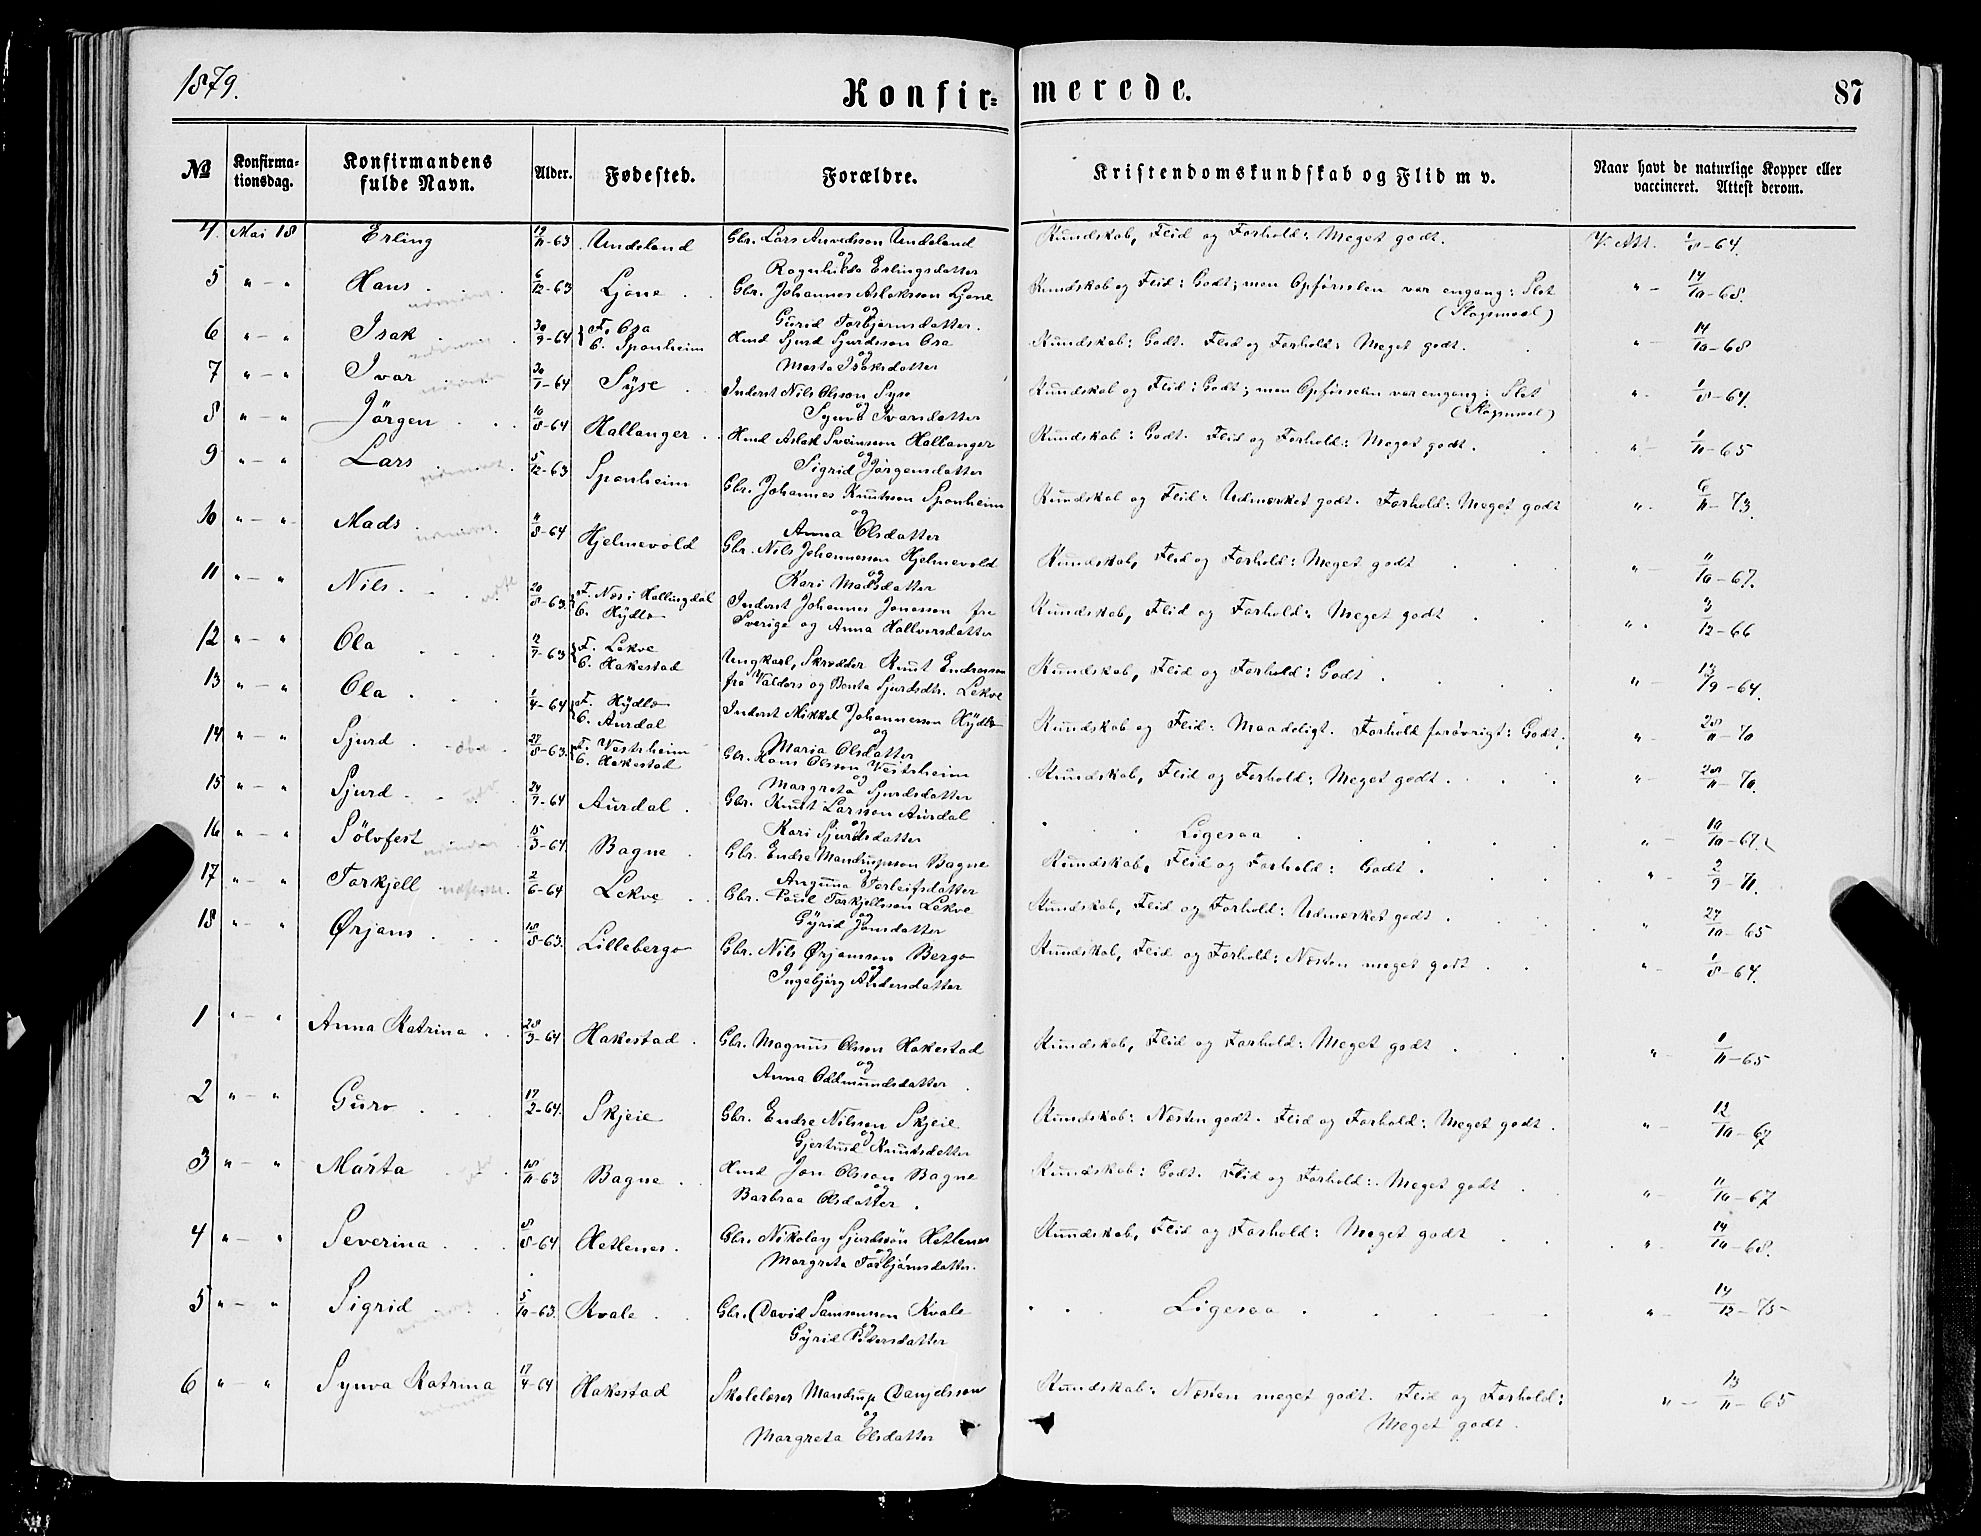 1879.
Konfir= merede.
87
No Konfirma-tionsdag. Konfirmandens fulde Navn. Alder. Fødested. Forældre. Kristendomskundskab og Flid m v. Naar havt de naturlige Kopper eller vaccineret. Attest derom.
4. Mai 18 Erling 19/11-63 Undeland Gbr. Lars Undeland Kundskab, Flid og Forhold: Meget godt. V. Att. 1/8-64.
og
Ragnhilda Erlingsdatter
5 " - " Hans 6/12-63 Ljone Gbr. Johannes Aslaksson Ljone Kundskab og Flid: Godt; men Opførselen var engang: Slet " - 14/10-68.
og (Slagsmaal)
Gurid Torbjørnsdatter.
6 " - " Isak 30/9-64 F. Osa Hmd Sjurd Sjurdsson Osa Kundskab: Godt. Flid og Forhold: Meget godt. " - 14/10-68
B. Sponheim
og
Marta Isaksdatter
7 " - " Ivar 30/1-64 Syse Inderst Nils Olsson Syse Kundskab og Flid: Godt; men Opførselen var engang: Slet " - 1/8-64.
og (Slagsmaal)
Synva Ivarsdatter
8 " - " Jörgen 10/8-64 Hallanger Hmd Aslak Sveinsson Hallanger Kundskab: Godt. Flid og Forhold: Meget godt. " - 1/10-65
og
Sigrid Jörgensdatter
9 " - " Lars 5/12-63 Sponheim Gbr. Johannes Knutsson Sponheim Kundskab og Flid: Udmærket godt. Forhold: Meget godt " - 6/11-73.
og
Anna Olsdatter
10 " - " Mads 11/8-64 Hjelmevold Gbr. Nils Johannesson Hjelmevold Kundskab, Flid og Forhold: Meget godt " - 11/10-67.
og
Kari Madsdatter
11 " - " Nils 20/8-63 F. Næs i Hallingdal Inderst Johannes Jonesson fra Kundskab, Flid og Forhold: Meget godt " - 3/12-66
B. Hydle Sverige og Anna Hallvorsdatter
12 " - " Ola 12/7-63 F. Lekve Ungkarl, Skrædder Knut Endresson Kundskab, Flid og Forhold: Godt " - 13/9-64.
B. Hakestad fra Valders og Benta Sjurdsdtr. Lekve
13 " - " Ola 1/4-64 F. Hydle Inderst Mikkel Johannesson Hydle Kundskab og Flid: Maadeligt. Forhold forøvrigt: Godt. " - 28/11-70
B. Aurdal
og
Maria Olsdatter
14 " - " Sjurd 27/8-63 F. Vestrheim Gbr. Hans Olsson Vestrheim Kundskab, Flid og Forhold: Meget godt " - 28/11-70.
B. Hakestad
og
Margreta Sjurdsdatter
15 " - " Sjurd 24/7-64 Aurdal Gbr. Knut Larsson Aurdal Ligesaa " - 10/10-67.
og
Kari Sjurdsdatter
16 " - " Sölvfest 15/3-64 Bagne Gbr. Endre Mandrupsson Bagne Kundskab, Flid og Forhold: Godt " - 2/9-71.
og
Anguna Torleifsdatter
17 " - " Torkjell 2/6-64 Lekve Gbr. Poul Torkjellsson Lekve Kundskab, Flid og Forhold: Udmærket godt " 27/10-65
og
Gyrid Jonsdatter
18 " - " Ørjans 18/8-63. Lillebergo Gbr. Nils Ørjansson Bergo Kundskab, Flid og Forhold: Næsten meget godt " - 1/8-64.
og
Ingebjørg Andersdatter
1 " - " Anna Katrina 28/3-64 Hakestad Gbr. Magnus Olsson Hakestad Kundskab, Flid og Forhold: Meget godt " - 1/11-65
og
Anna Oddmundsdatter
2 " - " Guro 17/2-64. Skjeie Gbr. Endre Nilsson Skjeie Kundskab: Næsten godt. Flid og Forhold: Meget godt. " - 12/10-67
og
Gjertrud Knutsdatter
3 " - " Márta 18/11-63 Bagne Hmd Jon Olsson Bagne Kundskab: Godt. Flid og Forhold: Meget godt " - 11/10-67
og
Barbraa Olsdatter.
4 " - " Severina 8/8-64 Hetlenes. Gbr. Nikolay Sjurdsson Hetlenes Kundskab, Flid og Forhold: Meget godt " - 14/10-68.
og
Margreta Torbjørnsdatter.
5 " - " Sigrid 5/10-63. Kvale Gbr. David Samsonson Kvale Ligesaa " - 14/12-75
og
Gyrid Petersdatter
6 " - " Synva Katrina 17/4-64 Hakestad Skolelærer Mandrup Danjelsson Kundskab: Næsten meget godt. Flid og Forhold: " - 13/11-65
og Meget godt.
Margreta Olsdatter